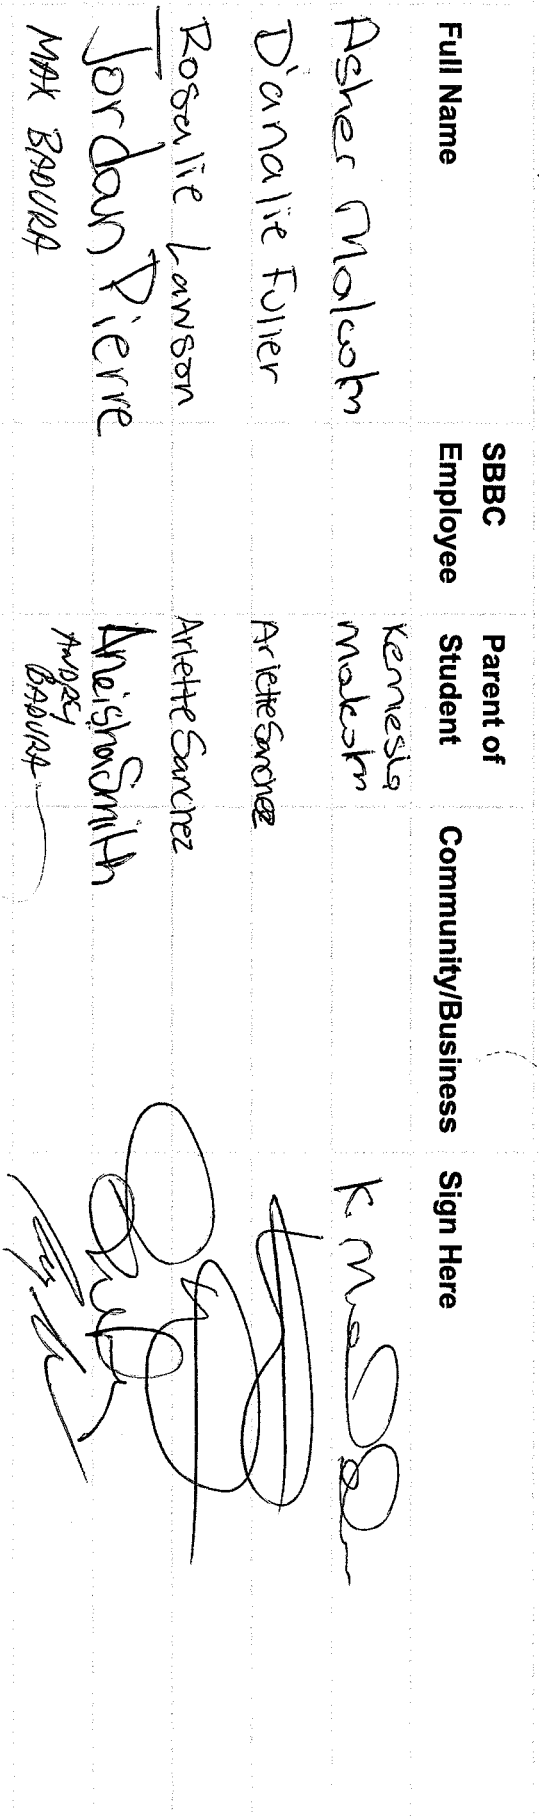 Full Name SBBC Employee Parent of Student Community/Business Sign Here
Asher Malcolm Kemiesha Malcolm K. Mal
D'analie Fuller Arlette Sanchez
Rosalie Lawson Arlette Sanchez
Jordan Pierre Aneisha Smith
MAX BADURA ANDREY BADURA